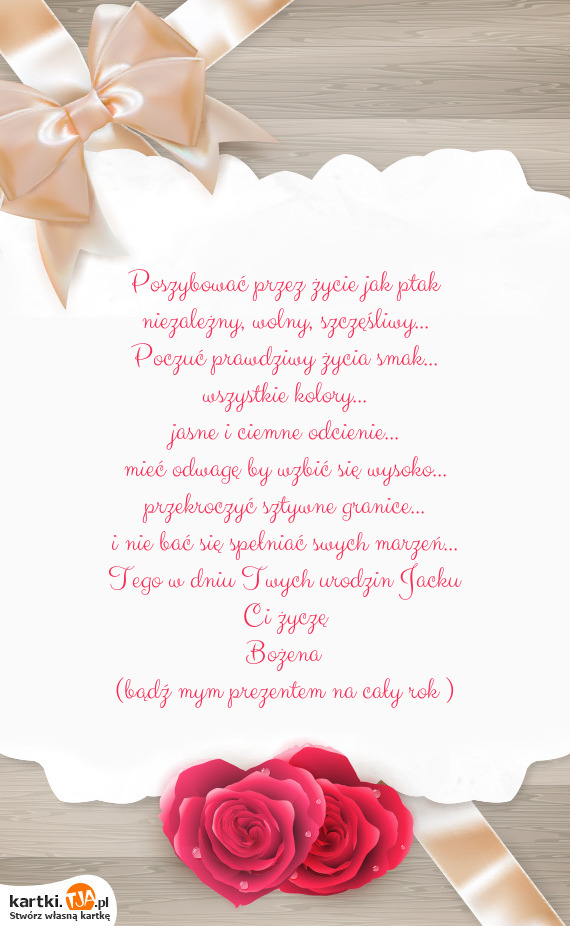 Poszybować przez życie jak ptak
niezależny, wolny, szczęśliwy...
Poczuć prawdziwy życia smak...
wszystkie kolory...
jasne i ciemne odcienie...
mieć odwagę by wzbić się wysoko...
przekroczyć sztywne granice...
i nie bać się spełniać swych marzeń...
Tego w dniu Twych urodzin Jacku
Ci życzę
Bożena
(bądź mym prezentem na cały rok )
kartki.TJA.pl
Stwórz własną kartkę